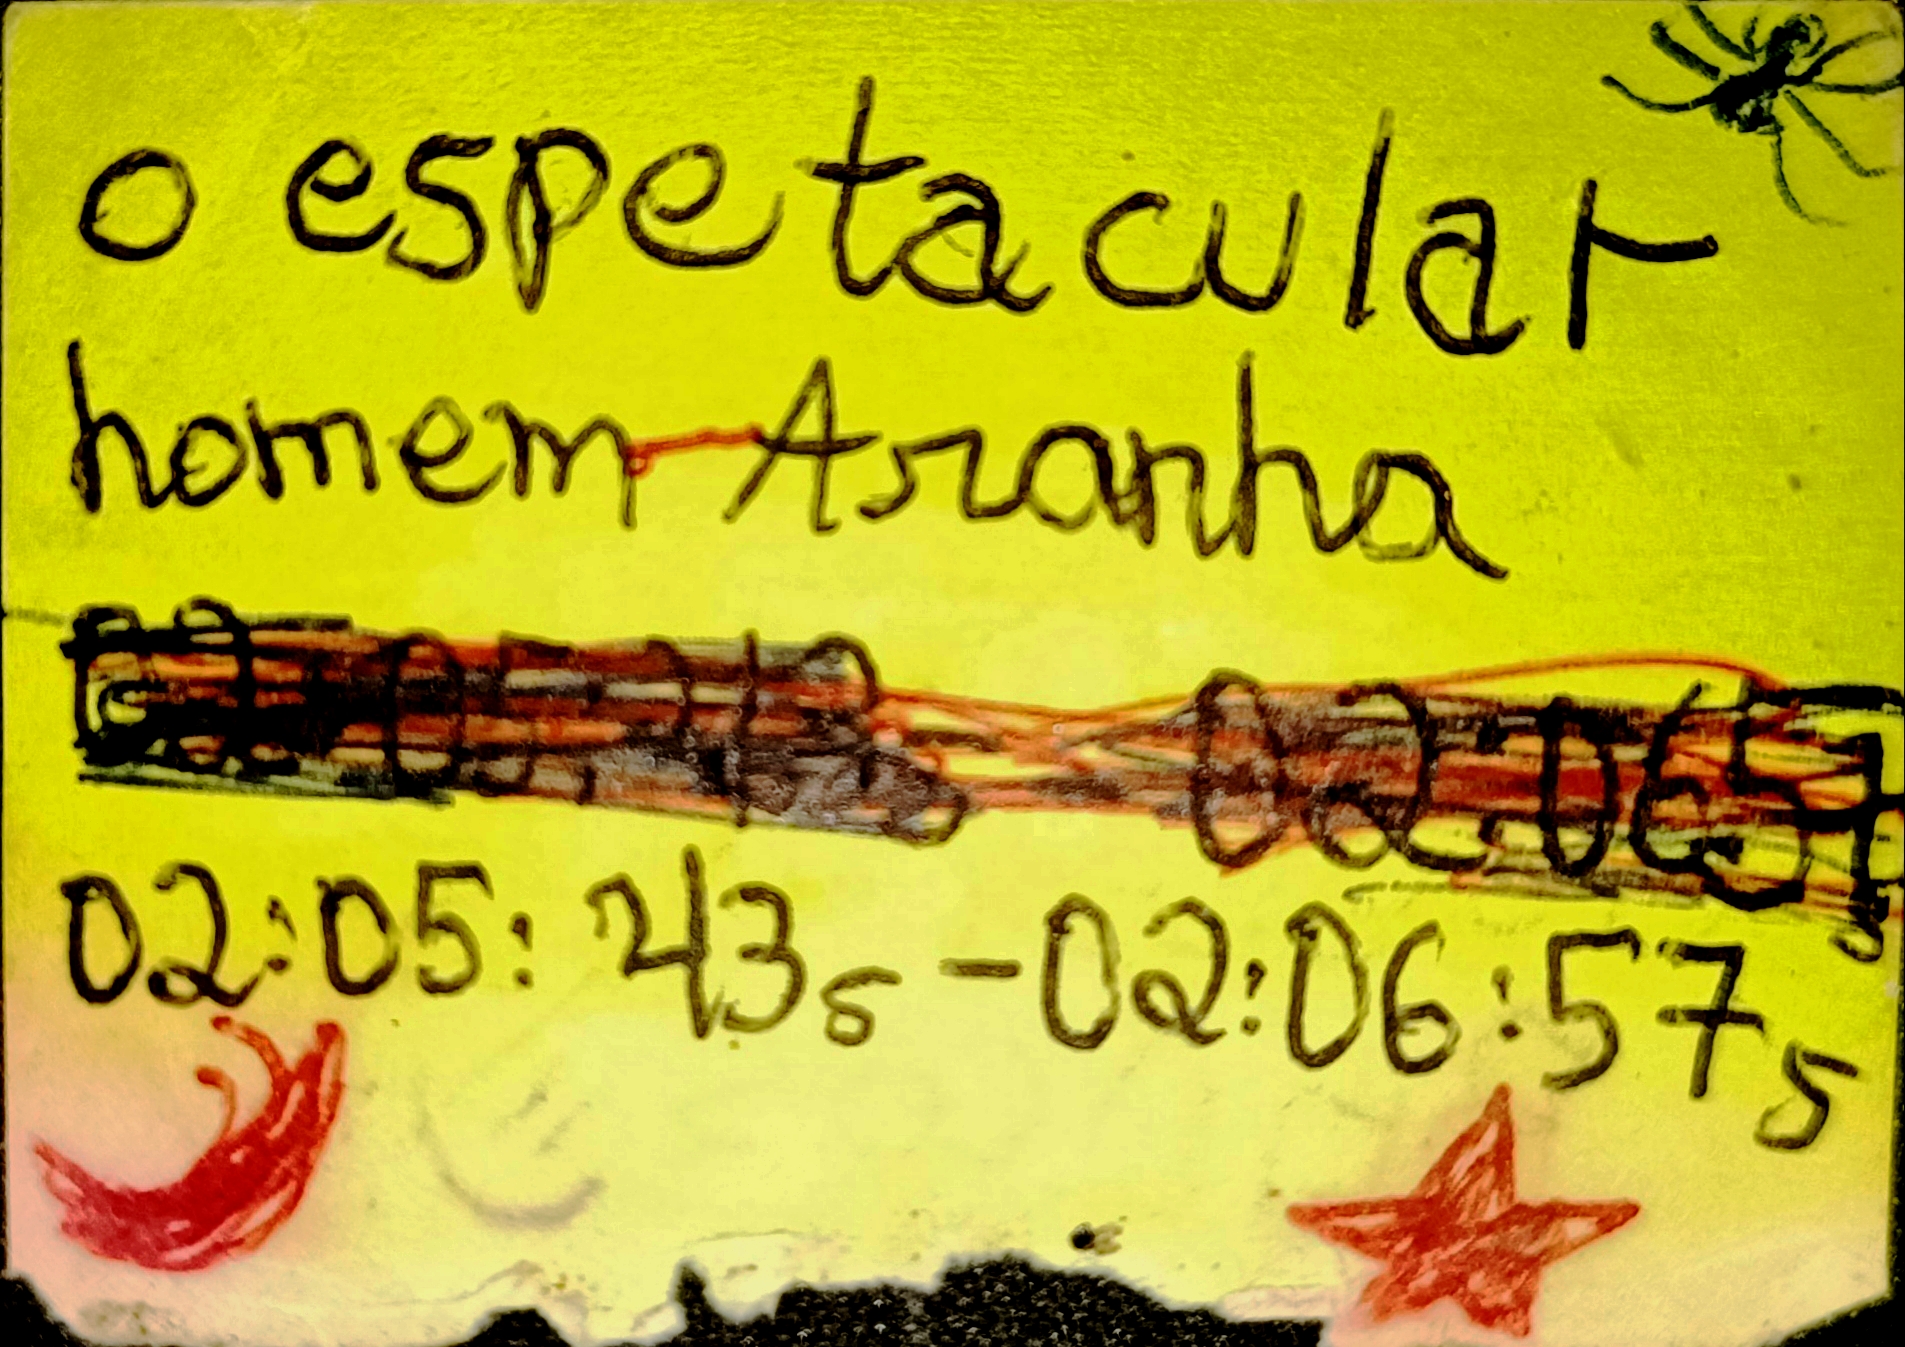 o espetacular
homem-Aranha
02:05:43s-02:06:57s